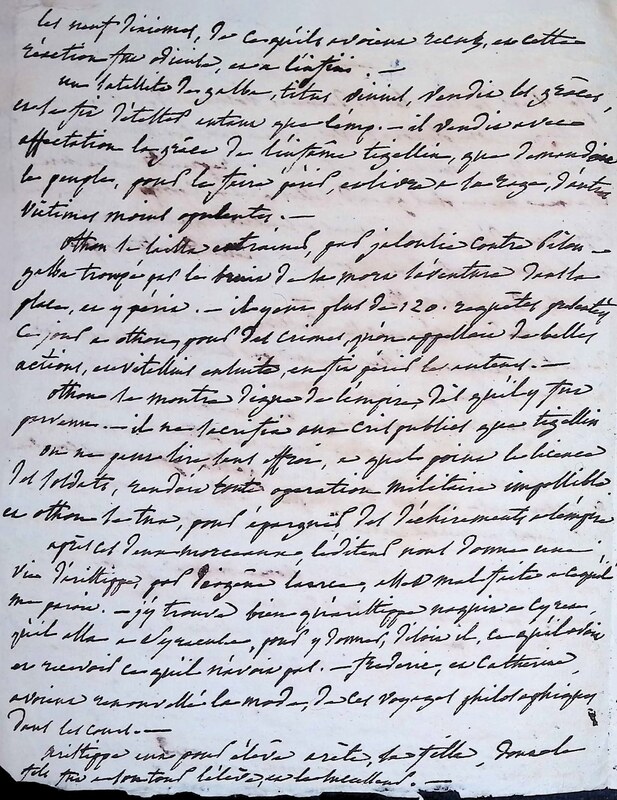 les neuf dixiemes, de ce qu'ils avoient recu, et cette
reaction fut odieuse, et a l'infini. —
un satellite de galba, titus vinius, vendit les grâces,
et se fit détester autant que l'emp. — il vendit avec
affectation la grâce de l'infâme tigellin, que demandoit
le peuple, pour le faire périr, et livra a la rage, d'autres
victimes moins opulentes. —
othon se laissa entrainer, par jalousie contre pison —
galba trompé par le bruit de sa mort s'aventure dans la
place, et y périt. — il y eut plus de 120. requêtes présentées
ce jour a othon, pour des crimes, qu'on appelloit de belles
actions, et vitellius ensuite, en fit périr les auteurs. —
othon se montra digne de l'empire, dès qu'il y fut
parvenu. — il ne sacrifia aux cris publics que tigellin
on ne peut lire, sans effroi, a quel point la licence
des soldats, rendoit toute operation militaire impossible.
et othon se tua, pour épargner des déchirements a l'empire
après ces deux morceaux, l'éditeur nous donne une
vie d'aristippe, par diogène laerce, assez mal faite a ce qu'il
me paroit. — j'y trouve bien qu'aristippe naquit a Cyrene,
qu'il alla a Syracuse, pour y donner, disoit il, ce qu'il avoit
et recevoir ce qu'il n'avoit pas. — frederic, et Catherine,
avoient renouvellé la mode, de ces voyages philosophiques
dans les cours. —
aristippe eut pour élève arête, sa fille, dont le
fils fut a son tour l'élève, et le